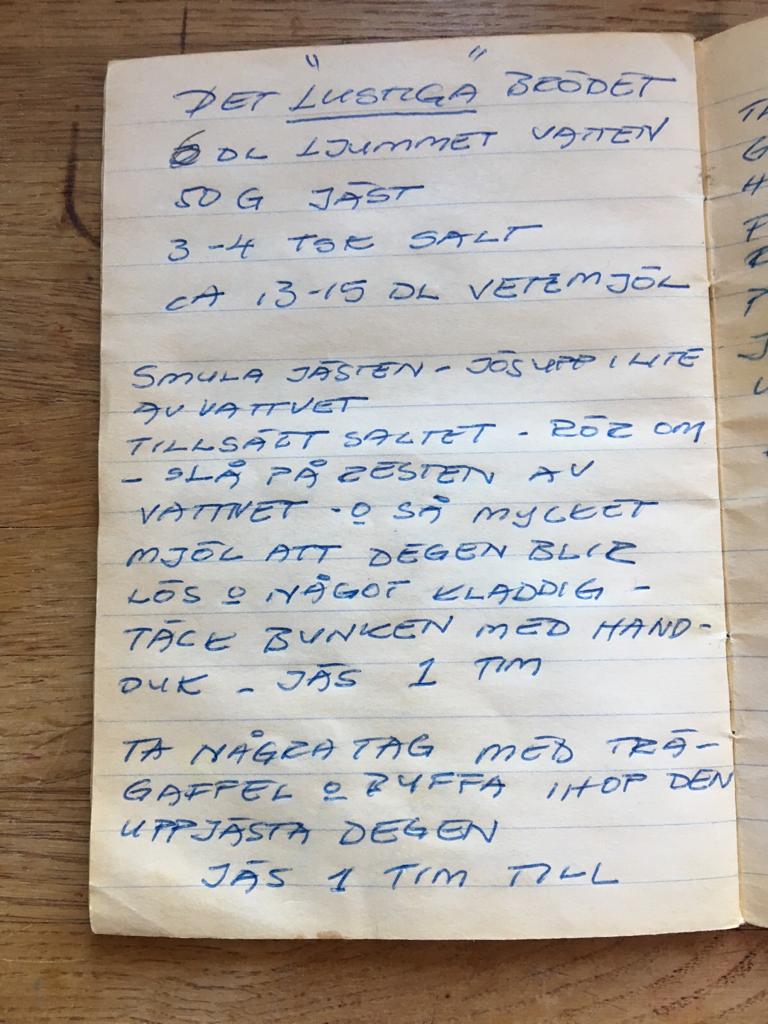 DET "LUSTIGA" BRÖDET
6 DL LJUMMET VATTEN
50 G JÄST
3-4 TSK SALT
CA 13-15 DL VETEMJÖL
SMULA JÄSTEN - LÖS UPP I LITE
AV VATTNET
TILLSÄTT SALTET - RÖR OM
- SLÅ PÅ RESTEN AV
VATTNET - O SÅ MYCKET
MJÖL ATT DEGEN BLIR
LÖS O NÅGOT KLADDIG -
TÄCK BUNKEN MED HAND-
DUK - JÄS 1 TIM
TA NÅGRA TAG MED TRÄ-
GAFFEL O BUFFA IHOP DEN
UPPJÄSTA DEGEN
JÄS 1 TIM TILL